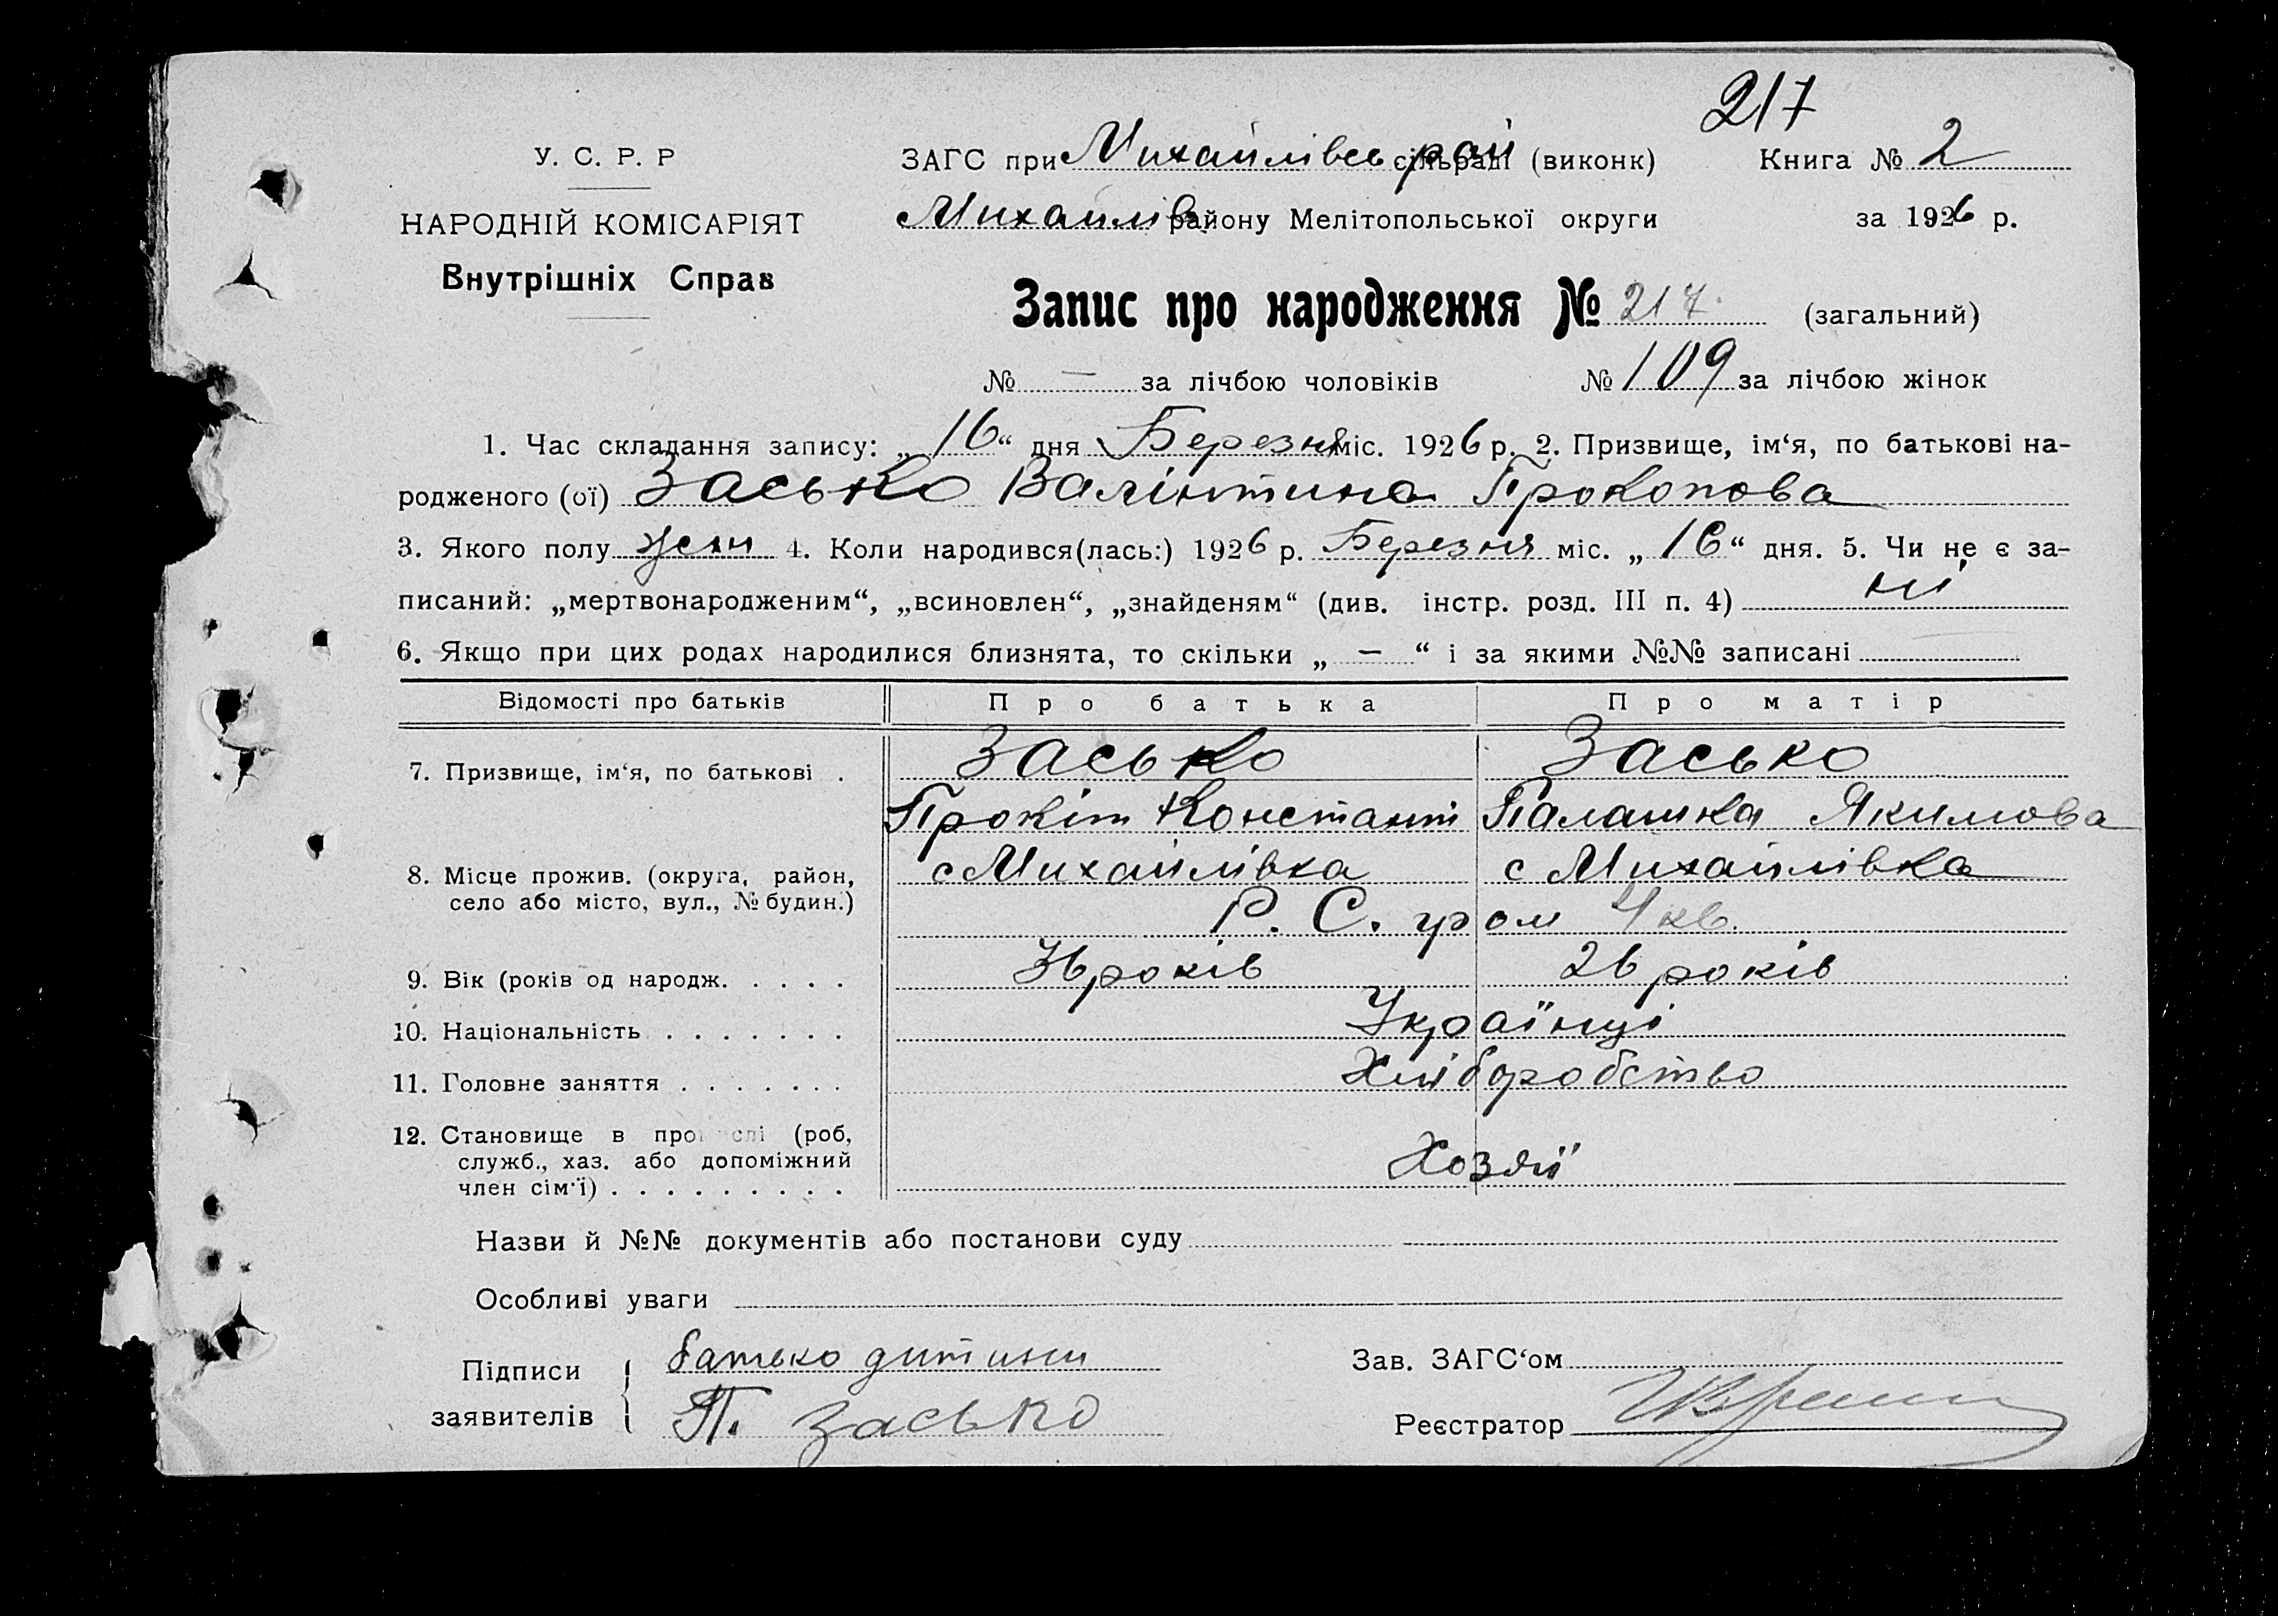 217
У. С. Р. Р
ЗАГС при Михайлівсь рай сільраді (виконк) Книга № 2
НАРОДНІЙ КОМІСАРІЯТ
Михайлів району Мелітопольської округи за 1926 р.
Внутрішніх Справ
Запис про народження № 217 (загальний)
№ — за лічбою чоловіків № 109 за лічбою жінок
1. Час складання запису: „16“ дня Березня міс. 1926 р. 2. Призвище, ім‘я, по батькові на-
родженого (ої) Засько Валінтина Прокопова
3. Якого полу жен 4. Коли народився(лась:) 1926 р. Березня міс. „16“ дня. 5. Чи не є за-
писаний: „мертвонародженим“, „всиновлен“, „знайденям“ (див. інстр. розд. III п. 4) ні
6. Якщо при цих родах народилися близнята, то скільки „ — “ і за якими №№ записані
Відомості про батьків Про батька Про матір
7. Призвище, ім‘я, по батькові . Засько Засько
Прокіп Констант Палашка Якимова
8. Місце прожив. (округа, район, с Михайлівка с Михайлівка
село або місто, вул., № будин.) Р. С. гром 4 кв.
9. Вік (років од народж. . . . . 36 років 26 років
10. Національність . . . . . . . Українці
11. Головне заняття . . . . . . . Хліборобство
12. Становище в промислі (роб,
служб., хаз. або допоміжний Хозяї
член сім‘ї) . . . . . . . . .
Назви й №№ документів або постанови суду
Особливі уваги
Підписи батько дитини Зав. ЗАГС‘ом
заявителів П. Засько Реєстратор